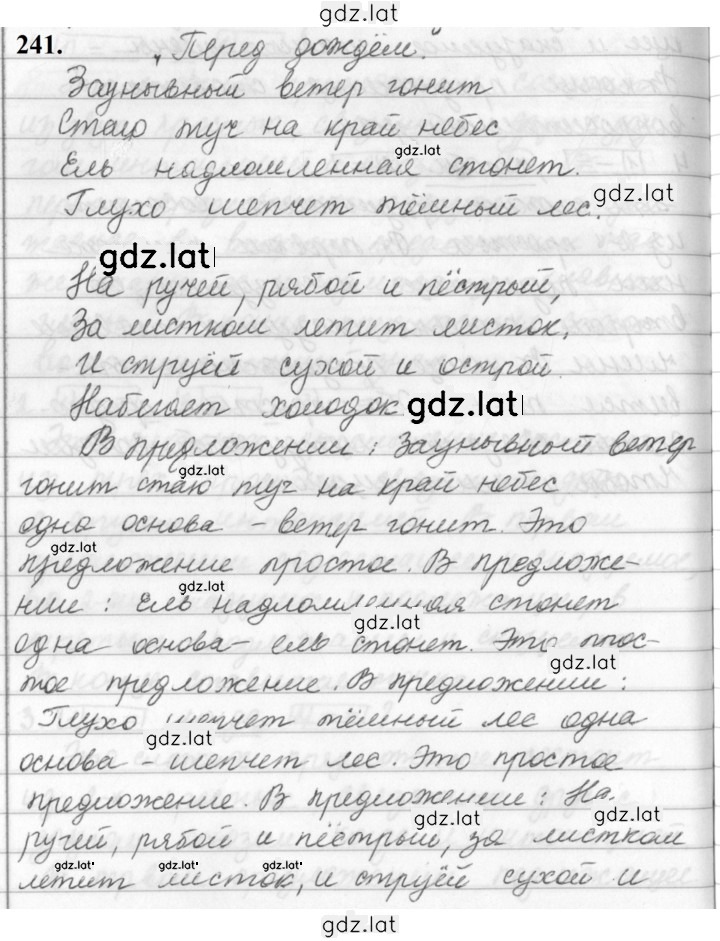 gdz.lat
241.
„Перед дождём."
Заунывный ветер гонит
Стаю туч на край небес
gdz.lat
Ель надломленная стонет.
gdz.lat
Глухо шепчет тёмный лес.
gdz.lat
На ручей, рябой и пёстрый,
За листком летит листок,
И струёй сухой и острой
Набегает холодок
gdz.lat
В предложении: Заунывный ветер
gdz.lat
гонит стаю туч на край небес
одна основа – ветер гонит. Это
gdz.lat
предложение простое. В предложе-
gdz.lat
нии: Ель надломленная стонет
gdz.lat
одна основа – ель стонет. Это прос-
gdz.lat
тое предложение. В предложении:
Глухо шепчет тёмный лес одна
gdz.lat
основа – шепчет лес. Это простое
предложение. В предложении: На
ручей, рябой и пёстрый, за листком
gdz.lat gdz.lat gdz.lat
летит листок, и струёй сухой и
gdz.lat